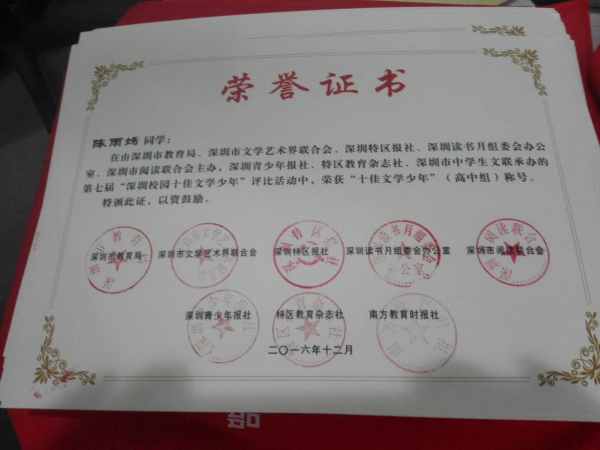 荣誉证书
陈雨嫣 同学：
在由深圳市教育局、深圳市文学艺术界联合会、深圳特区报社、深圳读书月组委会办公
室、深圳市阅读联合会主办，深圳青少年报社、特区教育杂志社、深圳市中学生文联承办的
第七届“深圳校园十佳文学少年”评比活动中，荣获“十佳文学少年”（高中组）称号。
特颁此证，以资鼓励。
深圳市教育局 深圳市文学艺术界联合会 深圳特区报社 深圳读书月组委会办公室 深圳市阅读联合会
深圳青少年报社 特区教育杂志社 南方教育时报社
二〇一六年十二月